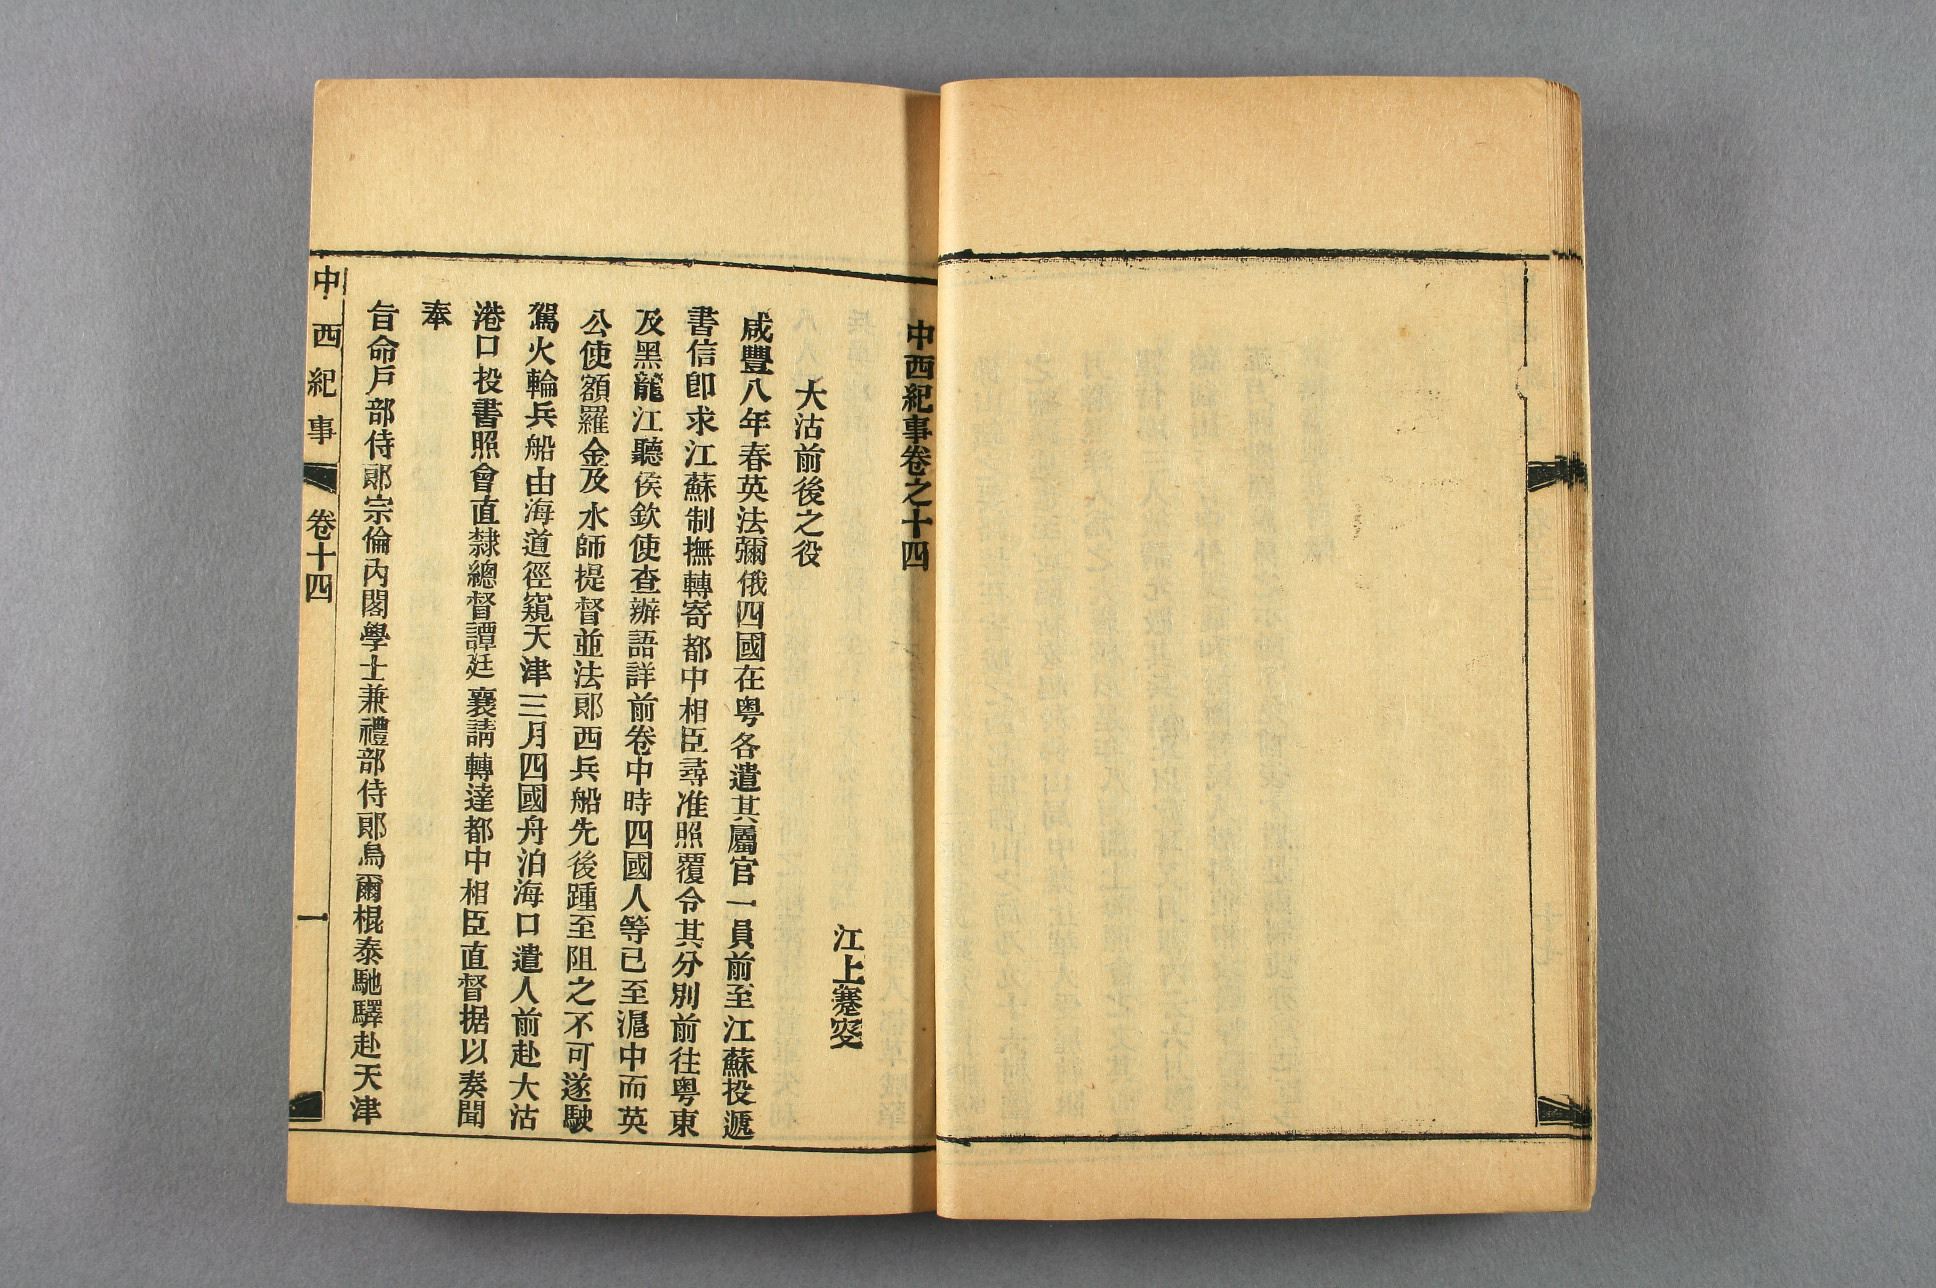 中西紀事卷之十四
江上蹇叟
大沽前後之役
咸豐八年春英法彌俄四國在粤各遣其屬官一員前至江蘇投遞
書信卽求江蘇制撫轉寄都中相臣尋准照覆令其分別前往粤東
及黑龍江聽侯欽使查辦語詳前卷中時四國人等已至滬中而英
公使額羅金及水師提督並法郞西兵船先後踵至阻之不可遂駛
駕火輪兵船由海道徑窺天津三月四國舟泊海口遣人前赴大沽
港口投書照會直隸總督譚廷襄請轉達都中相臣直督据以奏聞
奉
旨命戶部侍郞宗倫內閣學士兼禮部侍郞烏爾棍泰馳驛赴天津
中西紀事 卷十四 一